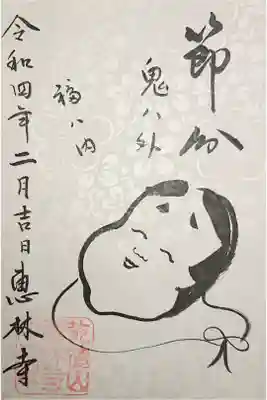 節分
鬼ハ外
福ハ内
令和四年二月吉日
恵林寺
乾徳山